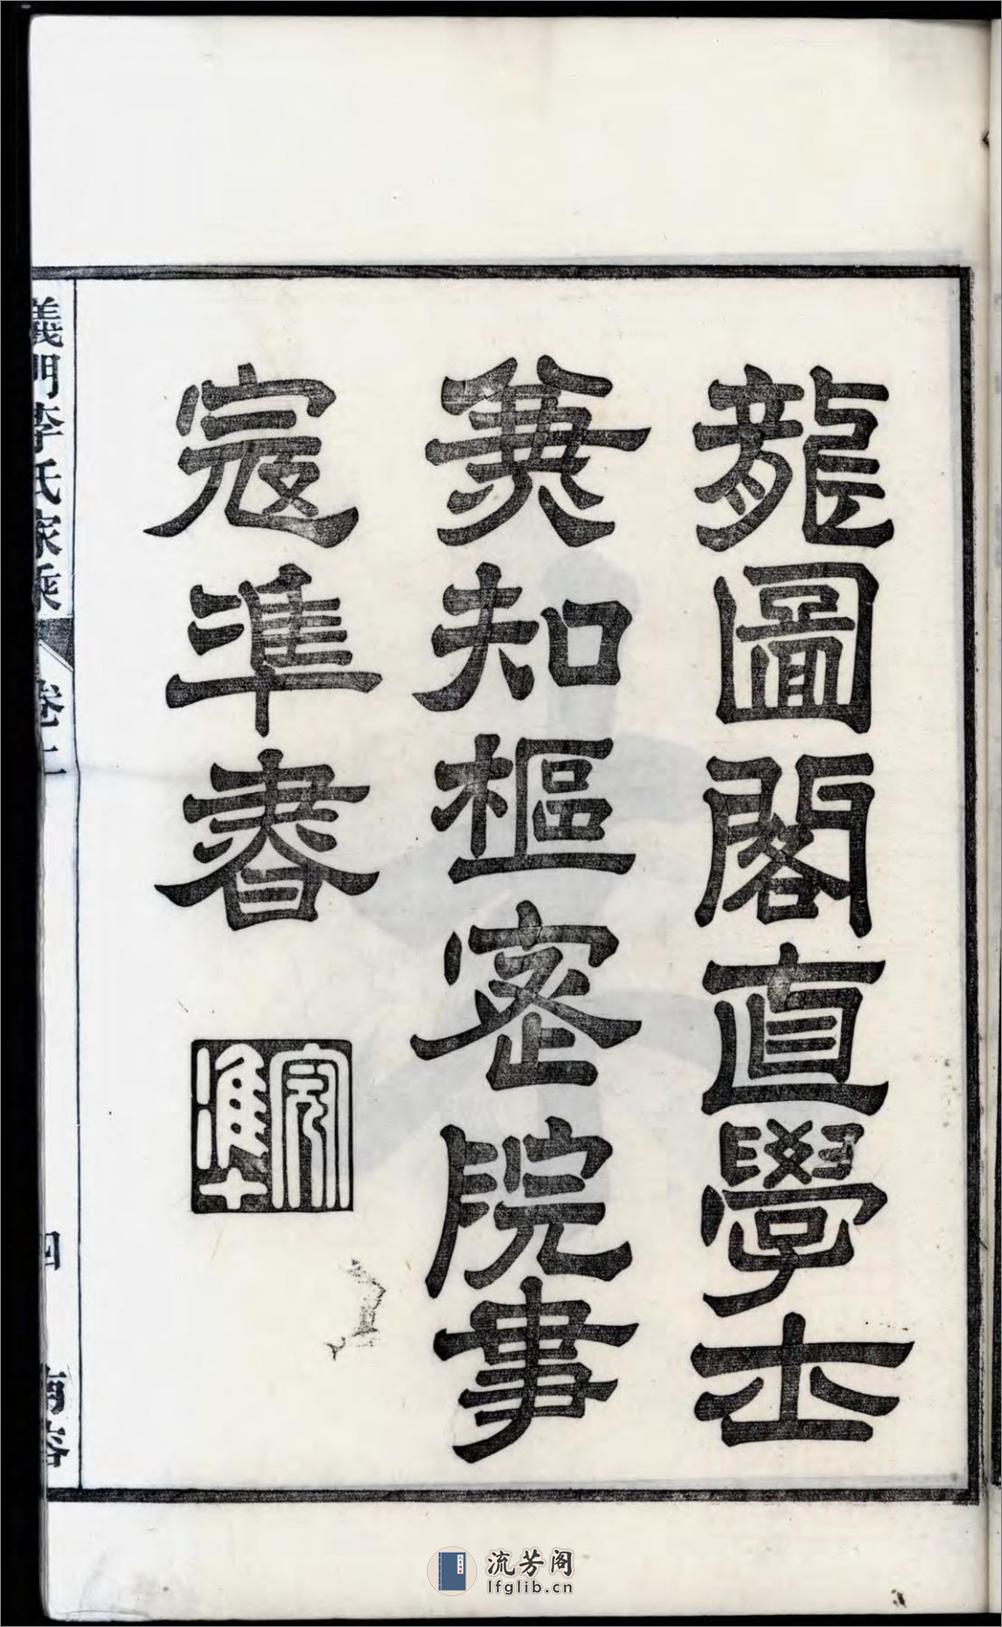 龍圖閣直學士
兼知樞密院事
寇準書
寇準
義門李氏家乘
卷
四
流芳阁
lfglib.cn